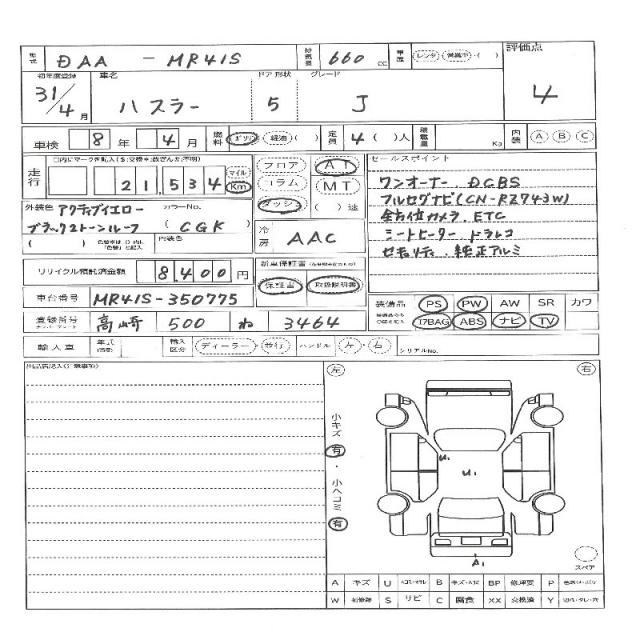 型式 DAA - MR41S 排気量 660 cc 車歴 レンタ・営業中・( ) 評価点
初年度登録 車名 ドア 形状 グレード
31/4月 ハスラー 5 J 4
車検 8年 4月 燃料 ガソリン 軽油 ( ) 定員 4 ( )人 積載量 Kg 内装 A B C
走行 21,534 マイル Km
フロア AT
コラム MT
ダッシュ ( )速
セールスポイント
ワンオーナー DCBS
フルセグナビ(CN-RZ743W)
全方位カメラ. ETC
シートヒーター ドラレコ
セキュリティ. 純正アルミ
外装色 アクティブイエロー カラーNo.
ブラック2トーンルーフ (CGK)
( ) 内装色
冷房 AAC
リサイクル預託済金額 8,400円
新車保証書
保証書 取扱説明書
車台番号 MR41S-350775
装備品 PS PW AW SR カワ
エアBAG ABS ナビ TV
登録番号 ナンバープレート 高崎 500 ね 3464
輸入車 年式 輸入区分 ディーラー・並行 ハンドル 左・右 シリアルNo.
左 右
小キズ 有・小ヘコミ 有
U1
U1
A1
スペア
A キズ U B キズ・ヘコミ BP 修理要 P
W S サビ C 腐食 XX 交換済 Y